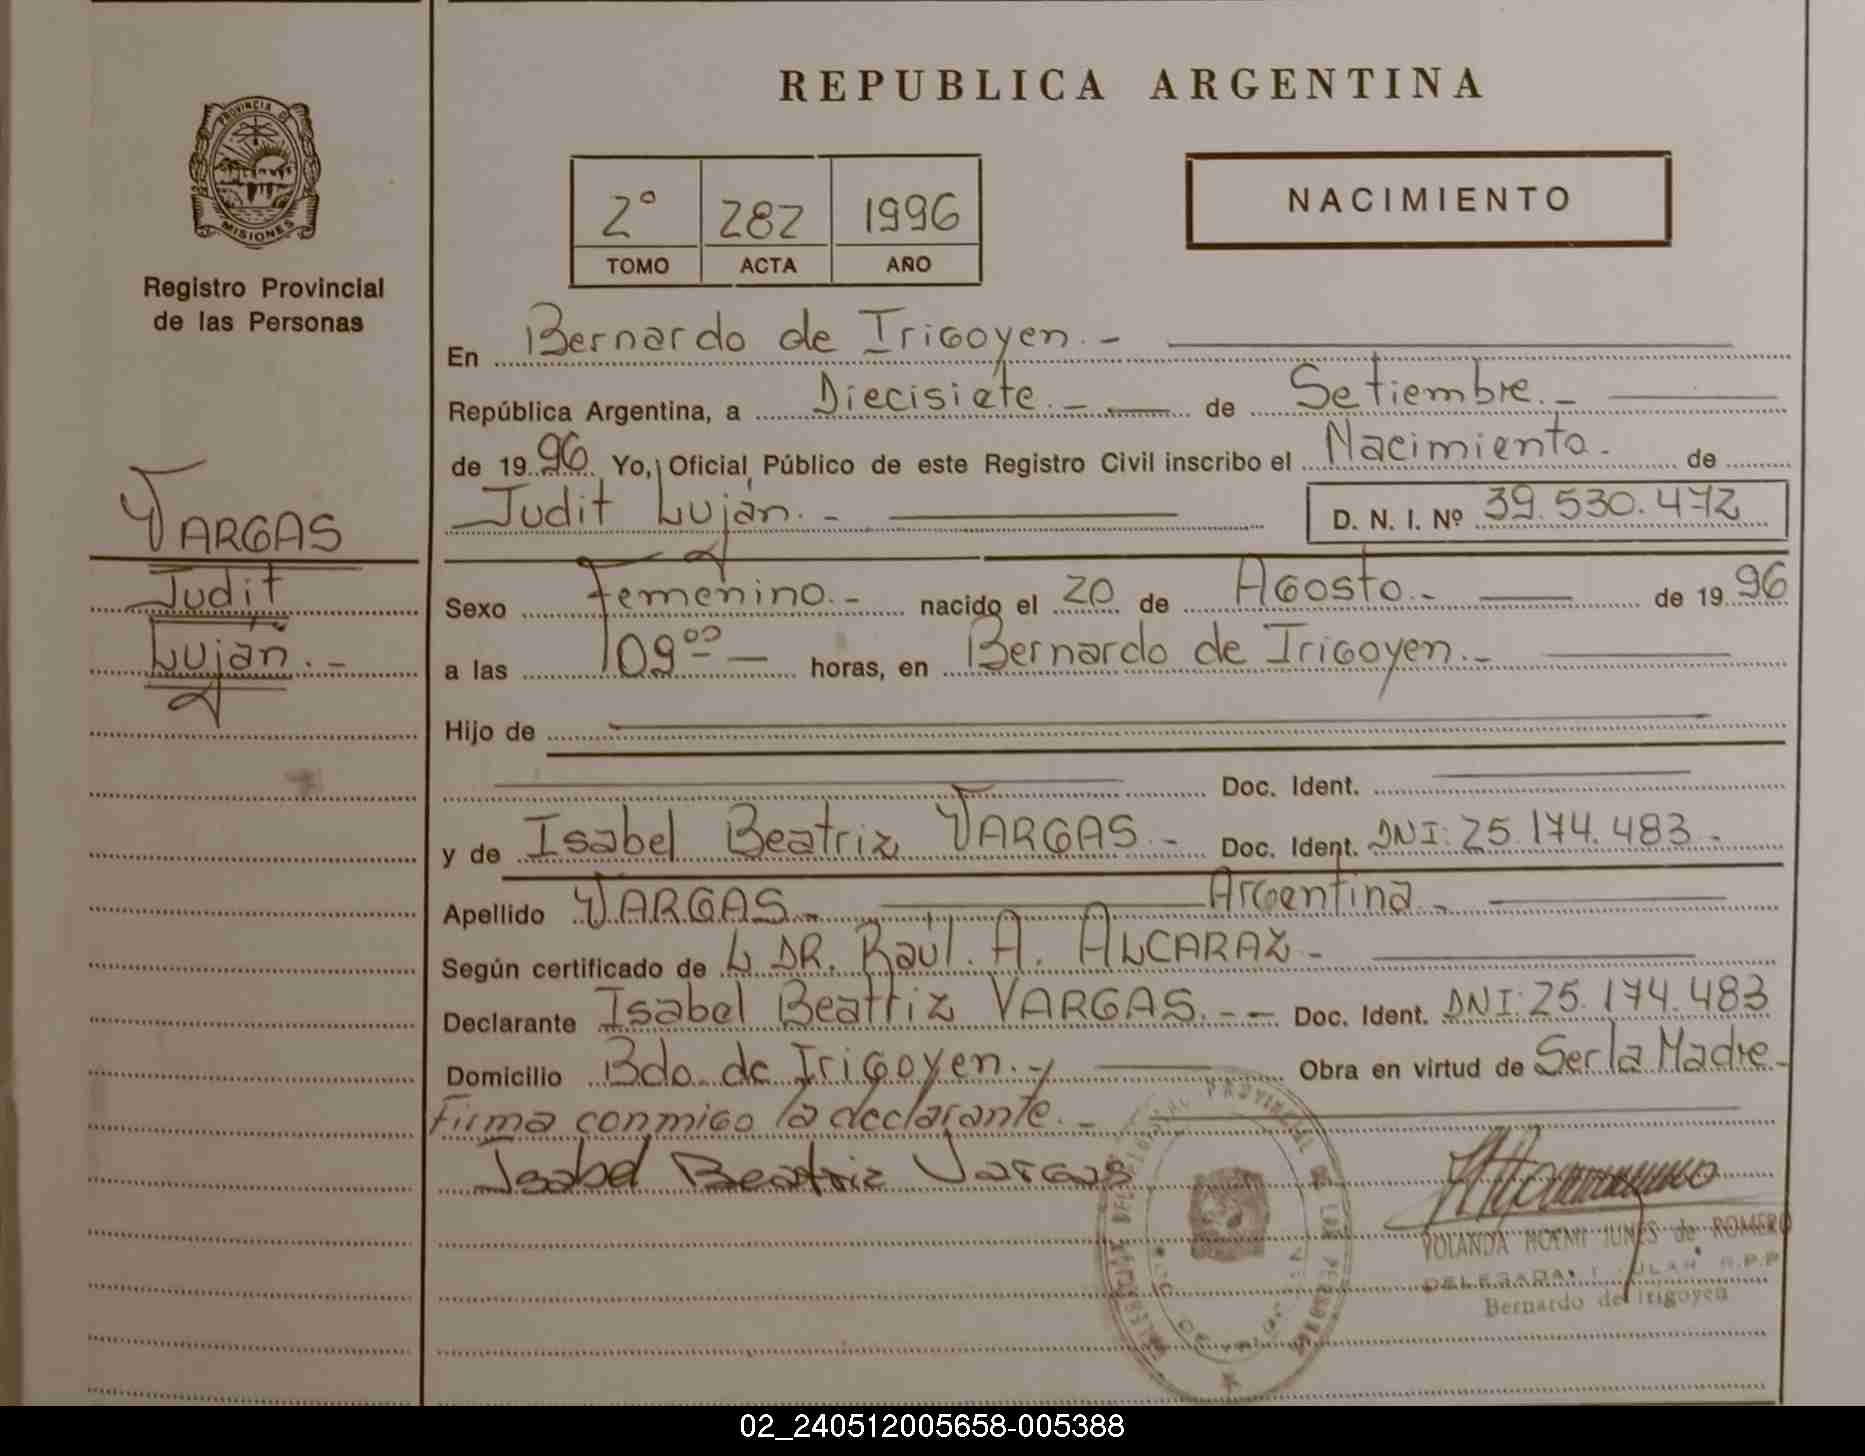 REPUBLICA ARGENTINA
PROVINCIA DE
MISIONES
Registro Provincial
de las Personas
2° 282 1996
TOMO ACTA AÑO
NACIMIENTO
En Bernardo de Irigoyen.-
República Argentina, a Diecisiete.- de Setiembre.-
de 1996 Yo, Oficial Público de este Registro Civil inscribo el Nacimiento. de
Judit Luján.- D. N. I. Nº 39.530.472
VARGAS
Judit
Luján.-
Sexo Femenino.- nacido el 20 de Agosto.- de 1996
a las 09⁰⁰ — horas, en Bernardo de Irigoyen.-
Hijo de
Doc. Ident.
y de Isabel Beatriz VARGAS.- Doc. Ident. DNI: 25.174.483.-
Apellido VARGAS.- Argentina.-
Según certificado de L DR. Raúl. A. ALCARAZ.-
Declarante Isabel Beatriz VARGAS.-- Doc. Ident. DNI: 25.174.483
Domicilio Bdo. de Irigoyen.- Obra en virtud de Ser la Madre-
Firma conmigo la declarante.-
Isabel Beatriz Vargas
PROVINCIAL DE LAS PERSONAS
YOLANDA NOEMI JUNES de ROMERO
DELEGADA R.P.P
Bernardo de Irigoyen
02_240512005658-005388